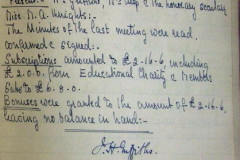 Present:- W. Griffiths, W. J. Meg & the honorary secretary
Mr. D. G. Knights:-
The Minutes of the last meeting were read,
confirmed & signed:-
Subscriptions amounted to £ 2-16-6, including
£ 2.0.0. from Educational Charity & Monthly
Subs to 6.8.0.
Bonuses were granted to the amount of £ 2-16-6,
leaving no balance in hand:-
J. H. Griffiths.